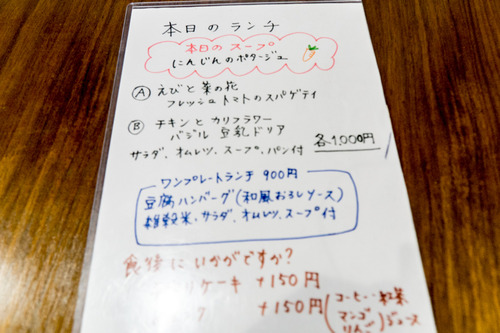 本日のランチ
本日のスープ
にんじんのポタージュ
Ⓐ えびと菜の花
フレッシュトマトのスパゲティ
Ⓑ チキンとカリフラワー
バジル豆乳ドリア
各1.000円
サラダ、オムレツ、スープ、パン付
ワンプレートランチ 900円
豆腐ハンバーグ(和風おろしソース)
雑穀米、サラダ、オムレツ、スープ付
食後にいかがですか?
ケーキ +150円
+150円
(コーヒー・紅茶
マンゴ
りんご ジュース